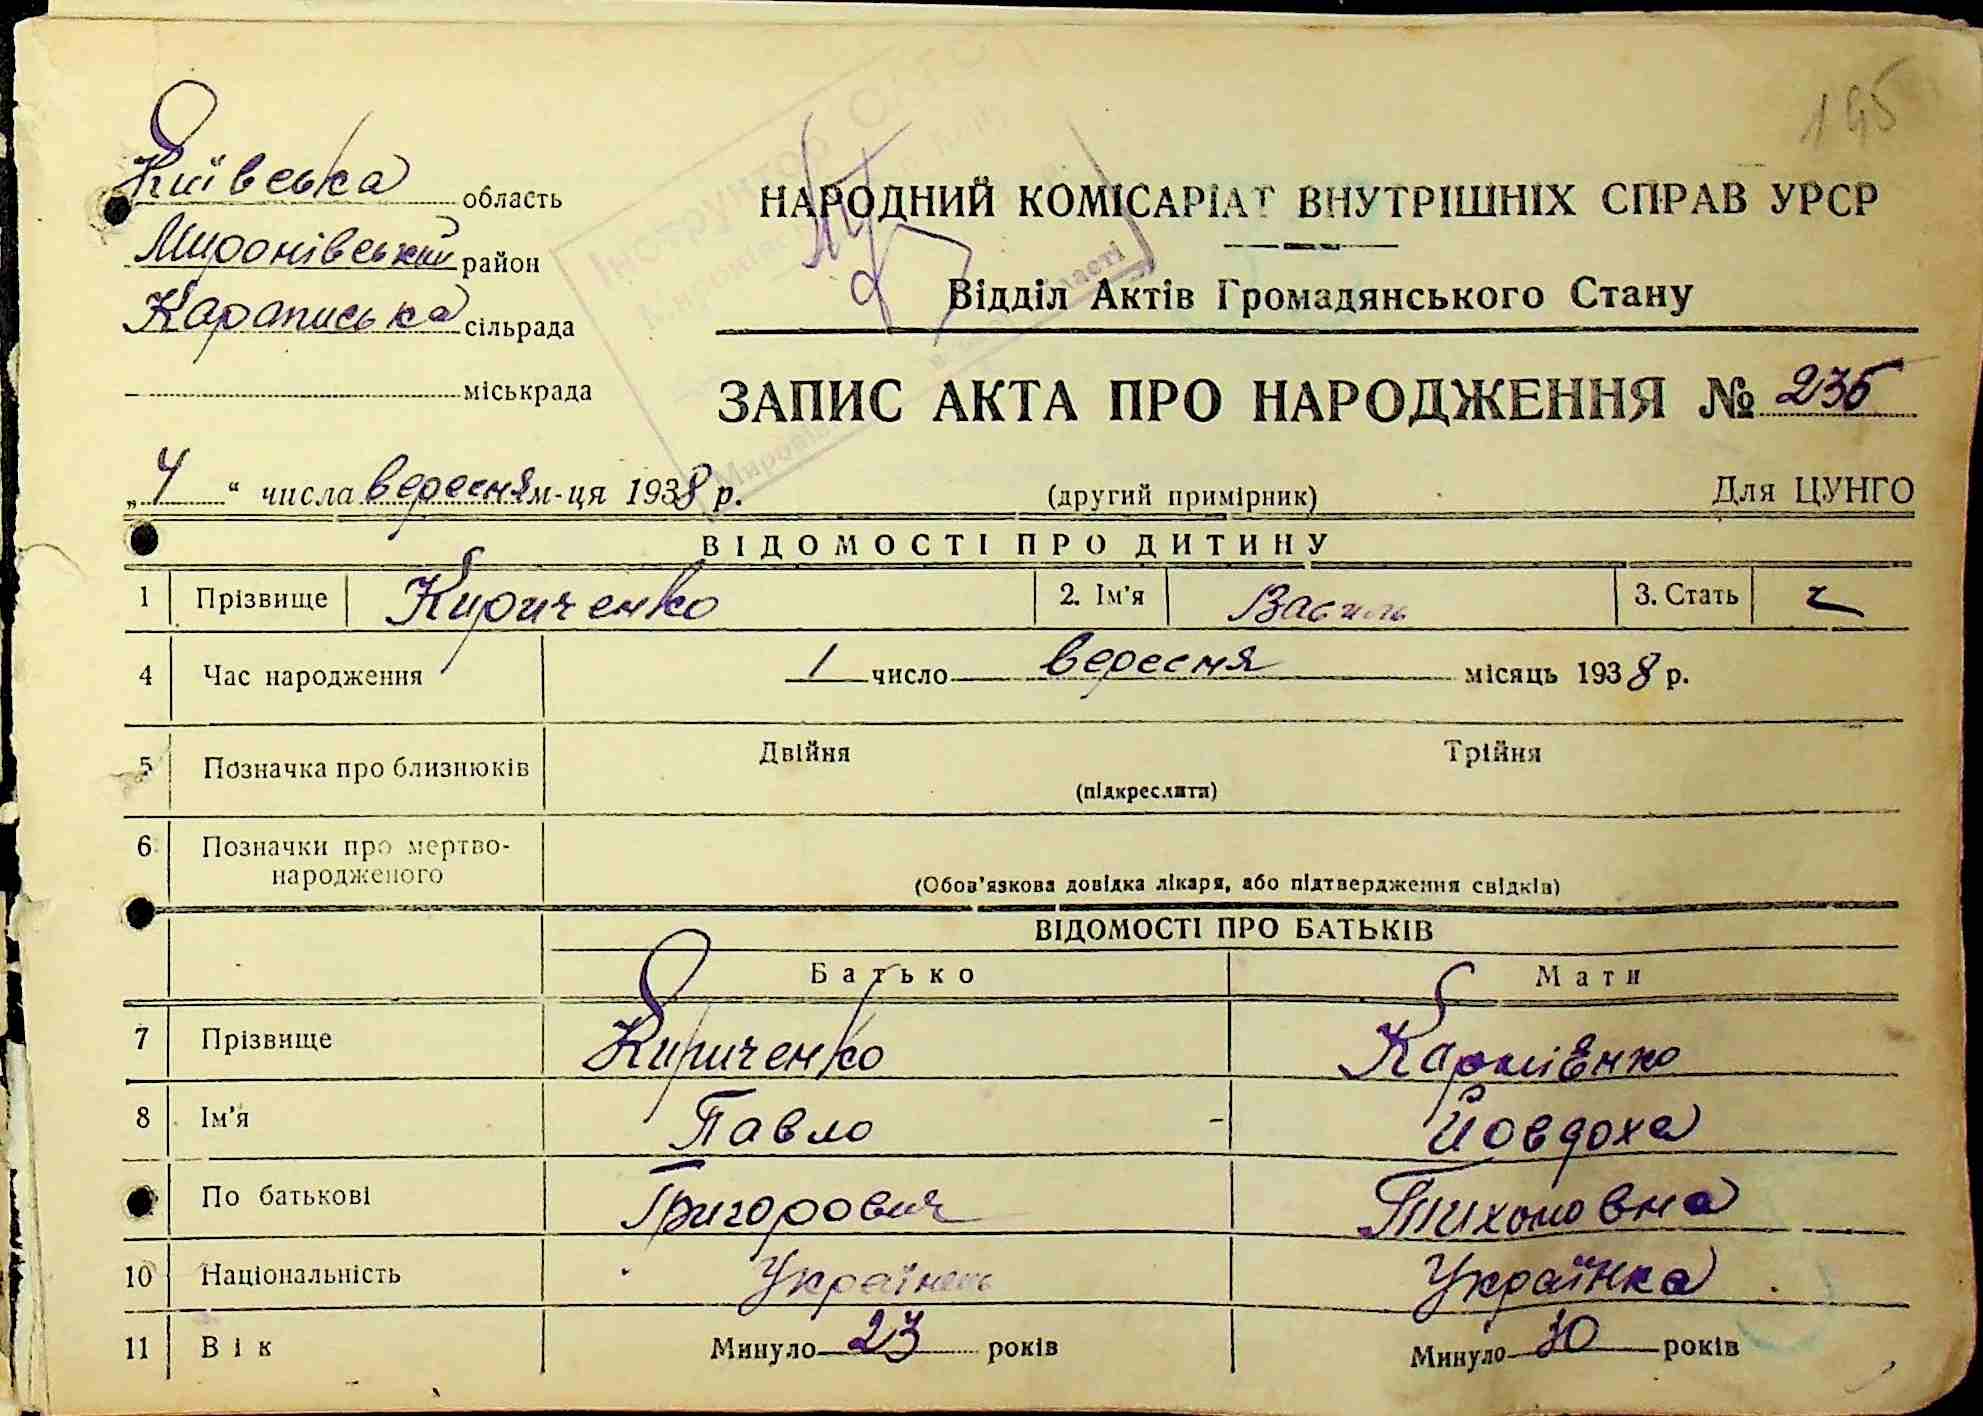 195
Київська область
Миронівський район
Караписька сільрада
міськрада
Інструктор
НАРОДНИЙ КОМІСАРІАТ ВНУТРІШНІХ СПРАВ УРСР
Відділ Актів Громадянського Стану
ЗАПИС АКТА ПРО НАРОДЖЕННЯ № 235
„4“ числа вересня м-ця 1938 р. (другий примірник) Для ЦУНГО
ВІДОМОСТІ ПРО ДИТИНУ
1 Прізвище Кириченко 2. Ім'я Василь 3. Стать ч
4 Час народження 1 число вересня місяць 1938 р.
5 Позначка про близнюків Двійня Трійня
(підкреслити)
6 Позначки про мертво-
народженого
(Обов'язкова довідка лікаря, або підтвердження свідків)
ВІДОМОСТІ ПРО БАТЬКІВ
Батько Мати
7 Прізвище Кириченко
8 Ім'я Павло Йовдоха
По батькові Григорович Тихоновна
10 Національність Українець Українка
11 Вік Минуло 23 років Минуло років